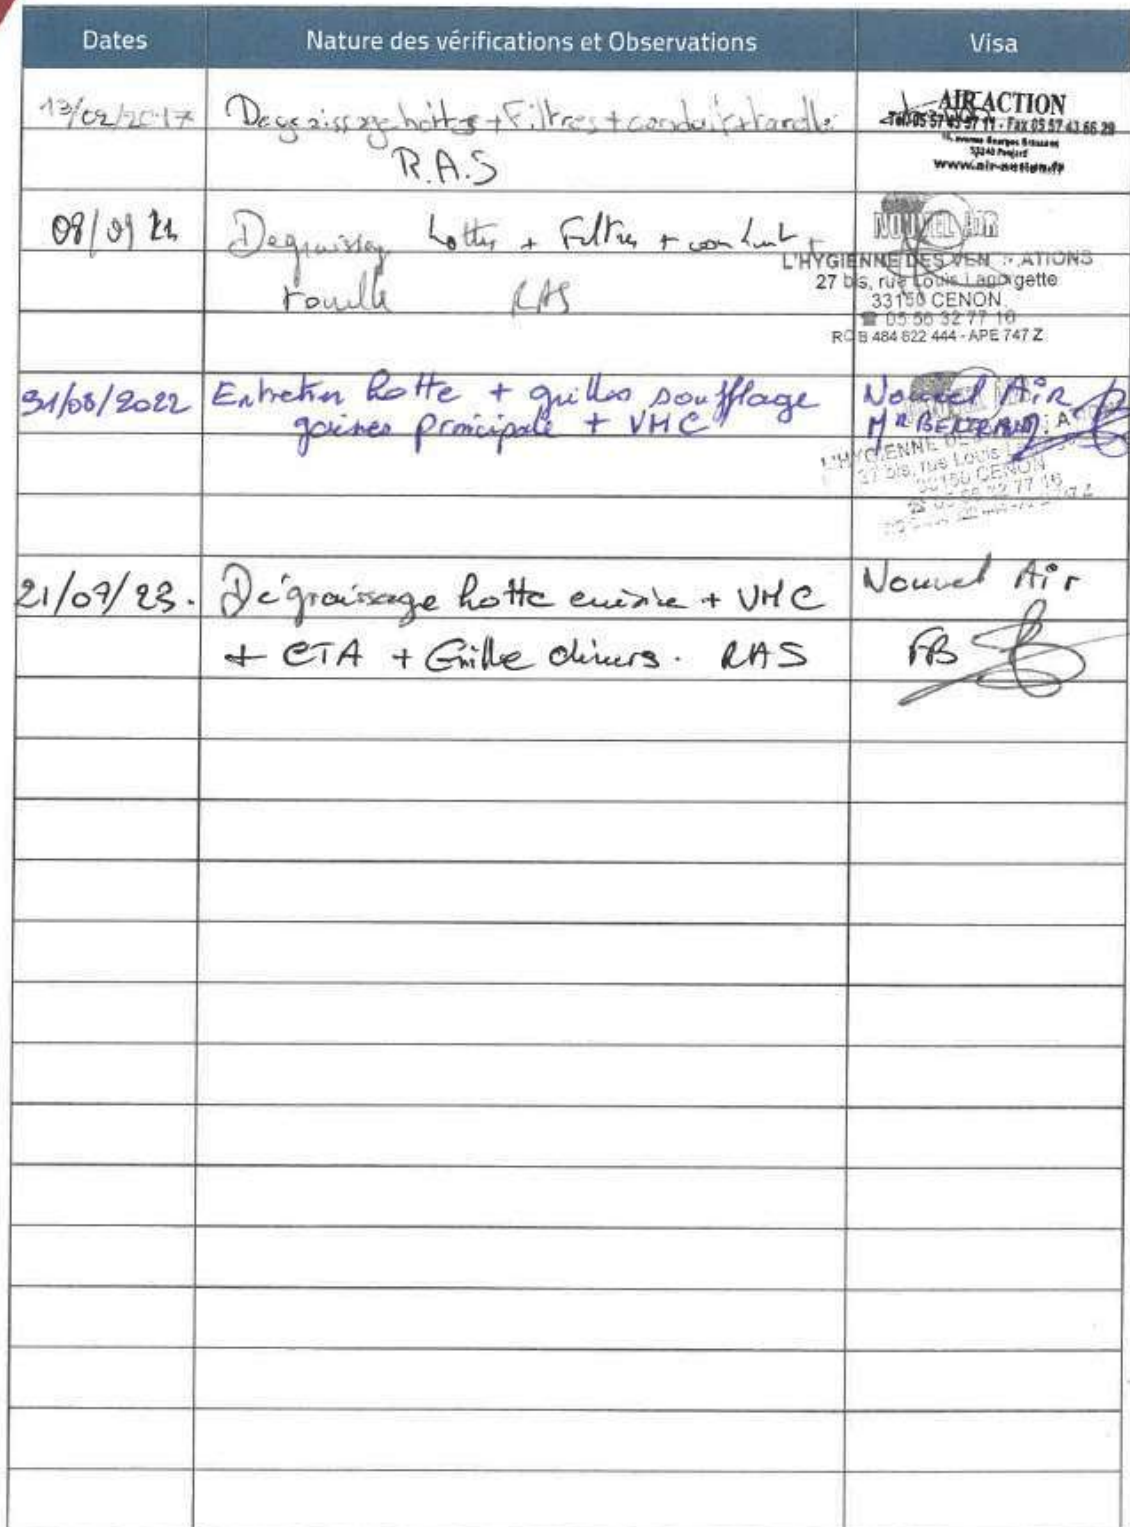 Dates Nature des vérifications et Observations Visa
13/02/2017 Degraissage hottes + Filtres + conduit + AIR ACTION
Tél. 05 57 43 57 11 - Fax 05 57 43 66 29
R.A.S
www.air-action.fr
08/09 Degraissage hottes + Filtres + conduit + NOUVEL AIR
L'HYGIENNE DES VEN ATIONS
27 bis, rue Louis Lagorgette
RAS
33150 CENON
☎ 05 56 32 77 16
RC B 484 622 444 - APE 747 Z
31/08/2022 Entretien hotte + grilles soufflage Nouvel Air
gaines principale + VMC Mr BERTRAND
L'HYGIENNE DES
27 bis, rue Louis
33150 CENON
☎ 05 56 32 77 16
21/07/23. Dégraissage hotte cuisine + VMC Nouvel Air
+ CTA + Grille divers. RAS FB